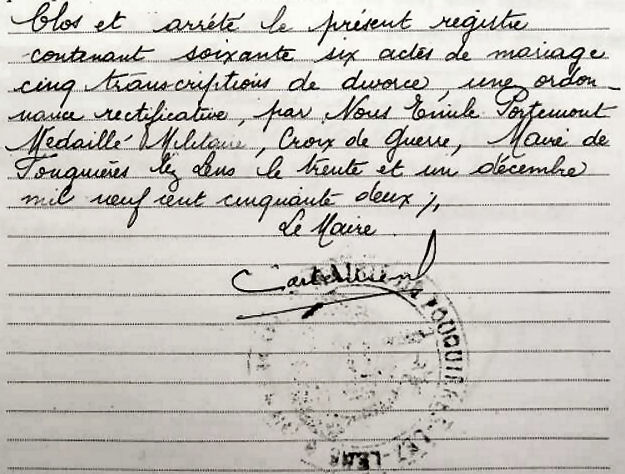 Clos et arrêté le présent registre
contenant soixante six actes de mariage
cinq transcriptions de divorce, une ordon-
nance rectificative, par Nous Emile Portemont
Médaillé Militaire, Croix de Guerre, Maire de
Fouquières lez Lens le trente et un décembre
mil neuf cent cinquante deux ;,
Le Maire
FOUQUIÈRES-LEZ-LENS